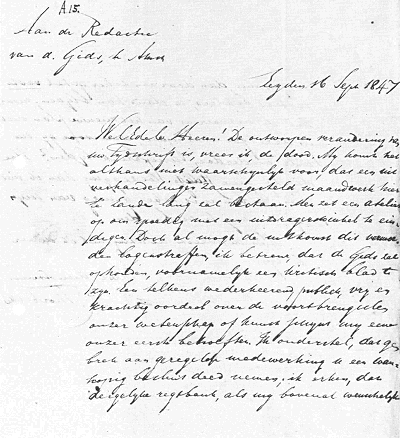 A 15.
Aan de Redactie
van d. Gids, te Amst
Leyden 16 Sept 1847
WelEdele Heeren! De ontworpen verandering van
uw Tydschrift is, vrees ik, de dood. My komt het
althans niet waarschynlyk voor, dat een uit
verhandelingen zamengesteld maandwerk hier
te lande lang zal bestaan. Men zet een
op om spoedig met een te ein-
digen. Doch al mogt de uitkomst dit
den logenstraffen, ik betreur, dat de Gids zal
ophouden, voornamelyk een kritisch blad te
zyn. Een telkens wederkeerend, publiek, vry en
krachtig oordeel over de voortbrengselen
onzer wetenschap of kunst my een
onzer eerste behoeften. Ik onderstel, dat ge-
brek aan geregelde medewerking u een wan-
hopig besluit deed nemen; ik erken, dat
dergelyke regtbank, als my bovenal wenschelyk